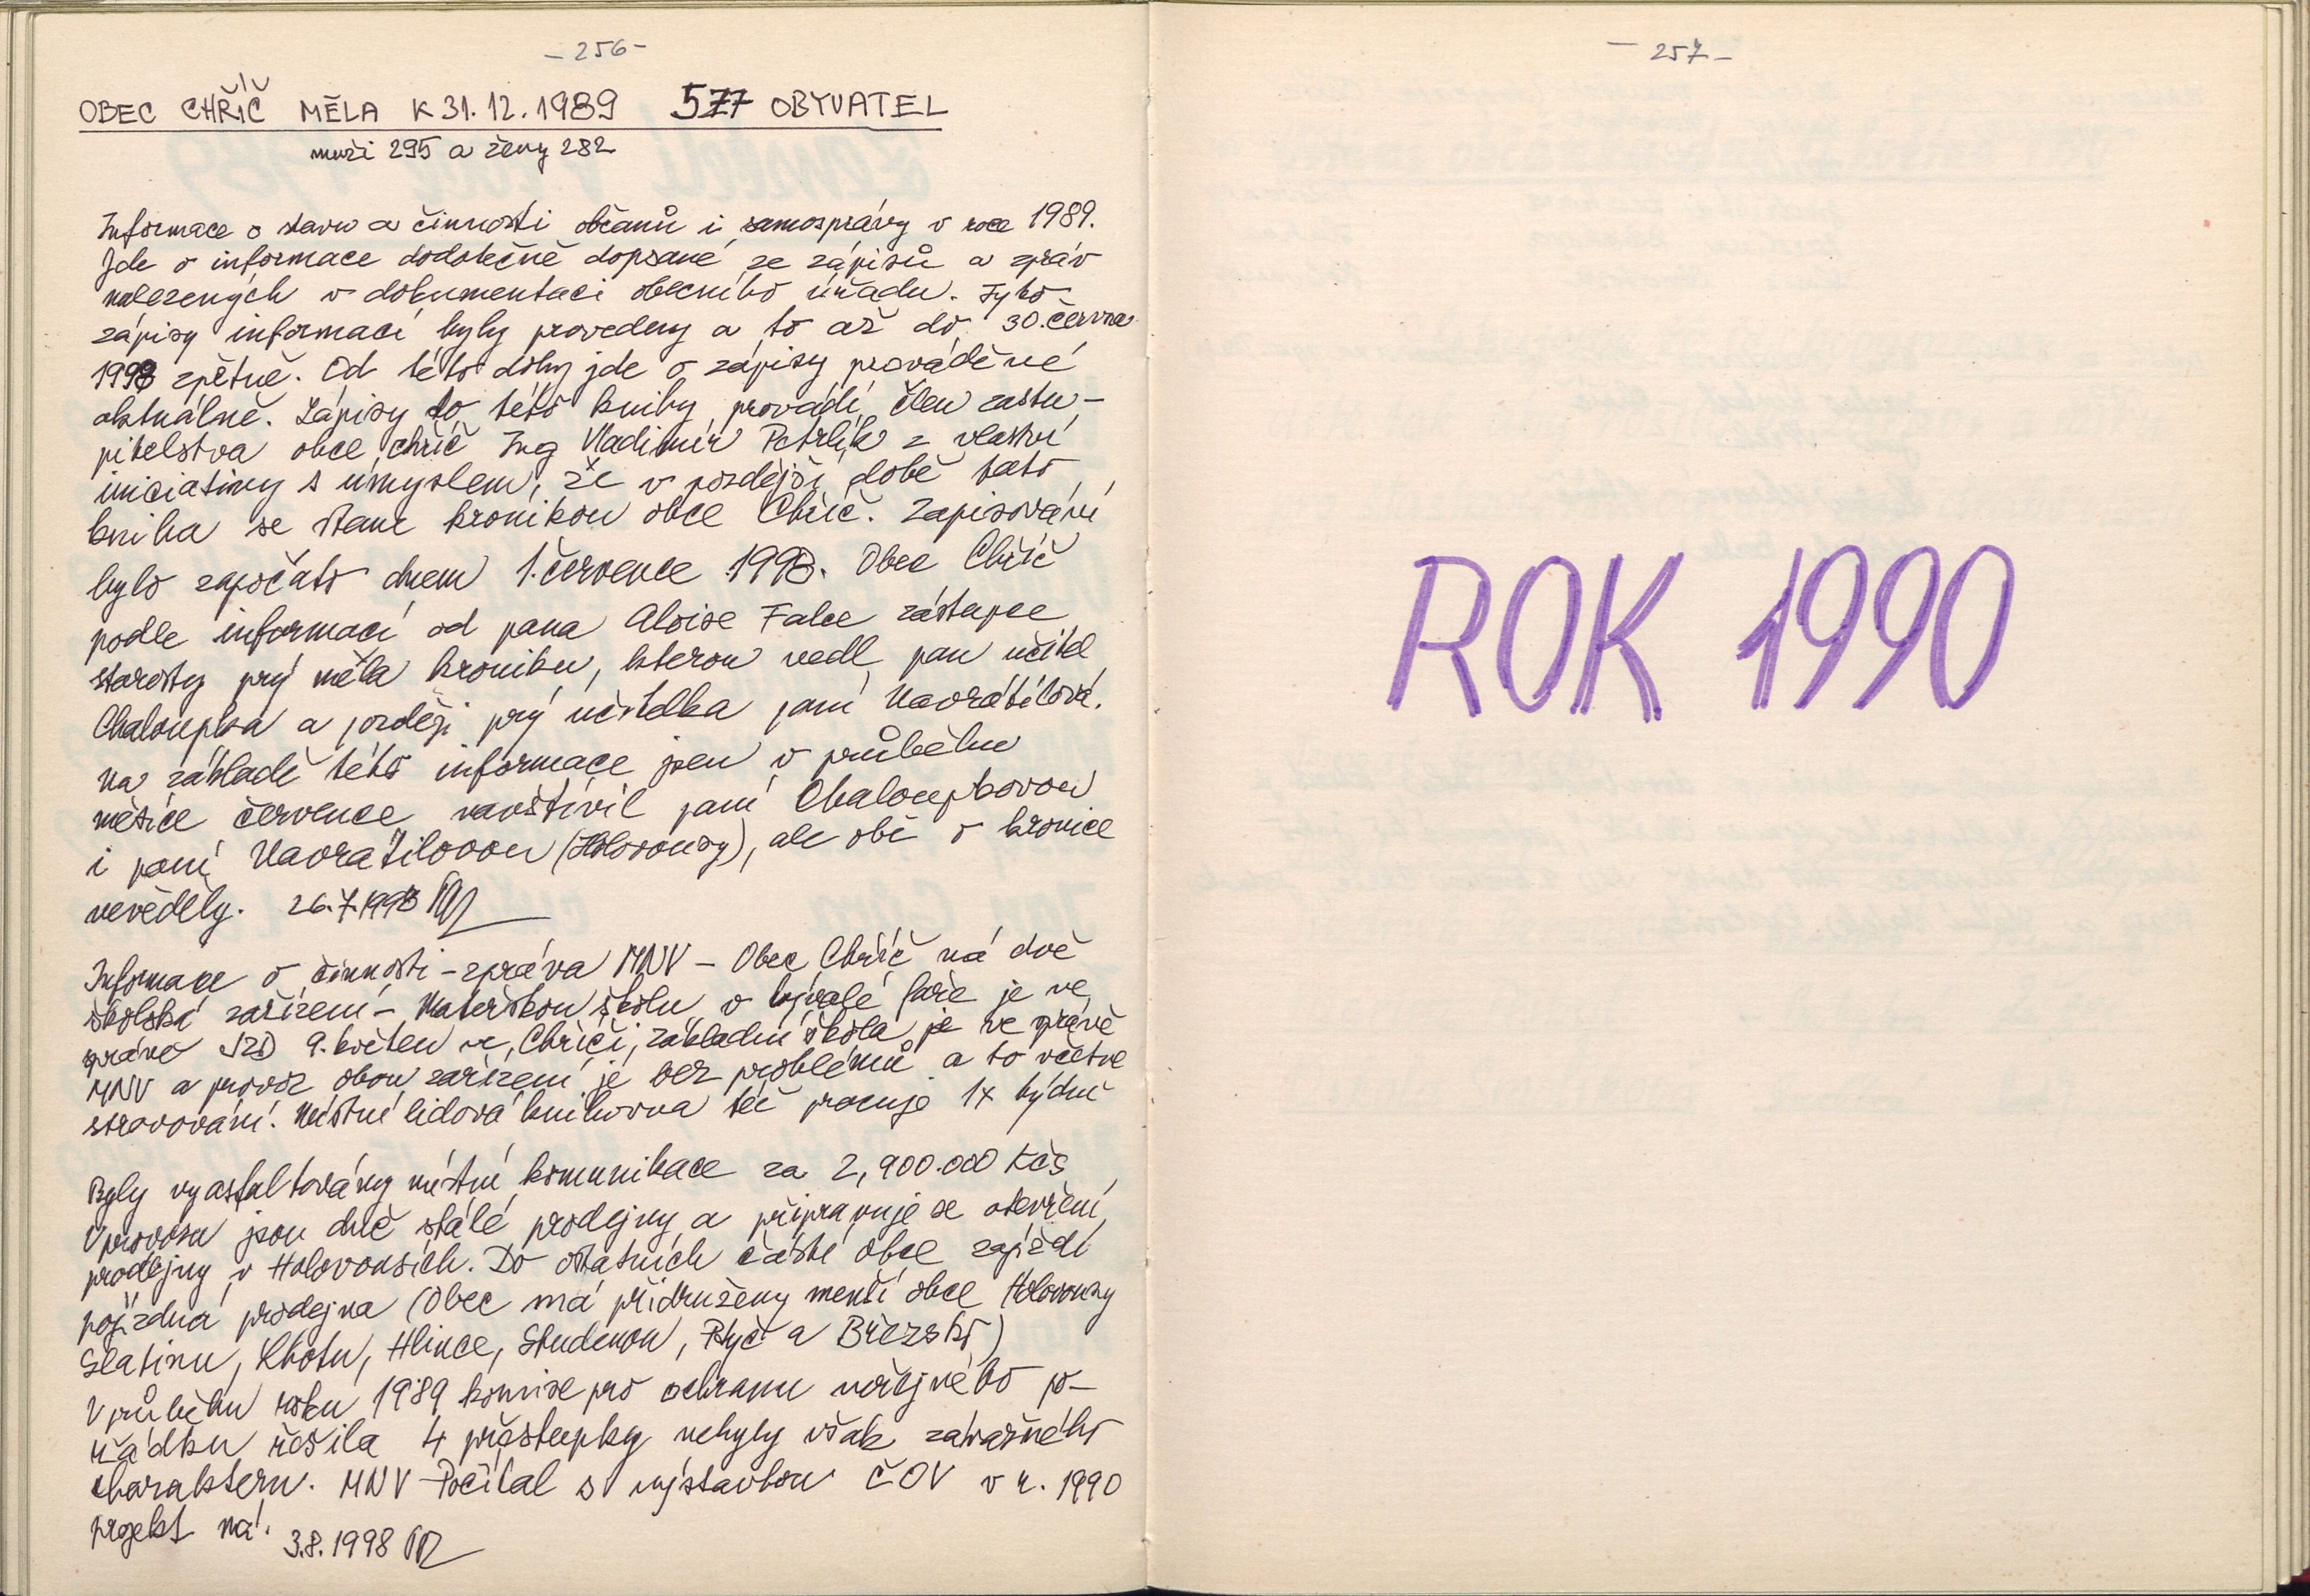 - 256 -
OBEC CHŘÍČ MĚLA K 31.12.1989 577 OBYVATEL
muži 295 a ženy 282
Informace o stavu a činnosti občanů i samosprávy v roce 1989.
Jde o informace dodatečně dopsané ze zápisů a zpráv
nalezených v dokumentaci obecního úřadu. Tyto
zápisy informací byly provedeny a to až do 30. června
1998 zpětně. Od této doby jde o zápisy prováděné
aktuálně. Zápisy do této knihy provádí člen zastu-
pitelstva obce Chříč Ing Vladimír Petrlík z vlastní
iniciativy s úmyslem, že v pozdější době tato
kniha se stane kronikou obce Chříč. Zapisování
bylo započato dnem 1. července 1998. Obec Chříč
podle informací od pana Aloise Falce zástupce
starosty prý měla kroniku, kterou vedl pan učitel
Chaloupka a později prý učitelka paní Navrátilová.
Na základě této informace jsem v průběhu
měsíce července navštívil paní Chaloupkovou
i paní Navrátilovou (Holovousy), ale obě o kronice
nevěděly. 26.7.1998
Informace o činnosti - zpráva MNV - Obec Chříč má dvě
školská zařízení - Mateřskou školu v bývalé faře je ve
správě JZD 9. květen ve Chříči, základní škola je ve správě
MNV a provoz obou zařízení je bez problémů a to včetně
stravování. Místní lidová knihovna též pracuje 1x týdně
Byly vyasfaltovány místní komunikace za 2,900.000 Kčs
V provozu jsou dvě stálé prodejny a připravuje se otevření
prodejny v Holovousích. Do ostatních částí obce zajíždí
pojízdná prodejna (Obec má přidruženy menší obce Holovousy
Slatinu, Lhotu, Hlince, Studenou, Ptyč a Březsko)
V průběhu roku 1989 komise pro ochranu veřejného po-
řádku řešila 4 přestupky nebyly však závažného
charakteru. MNV Počítal s výstavbou ČOV v r. 1990
projekt má. 3.8.1998
- 257 -
ROK 1990